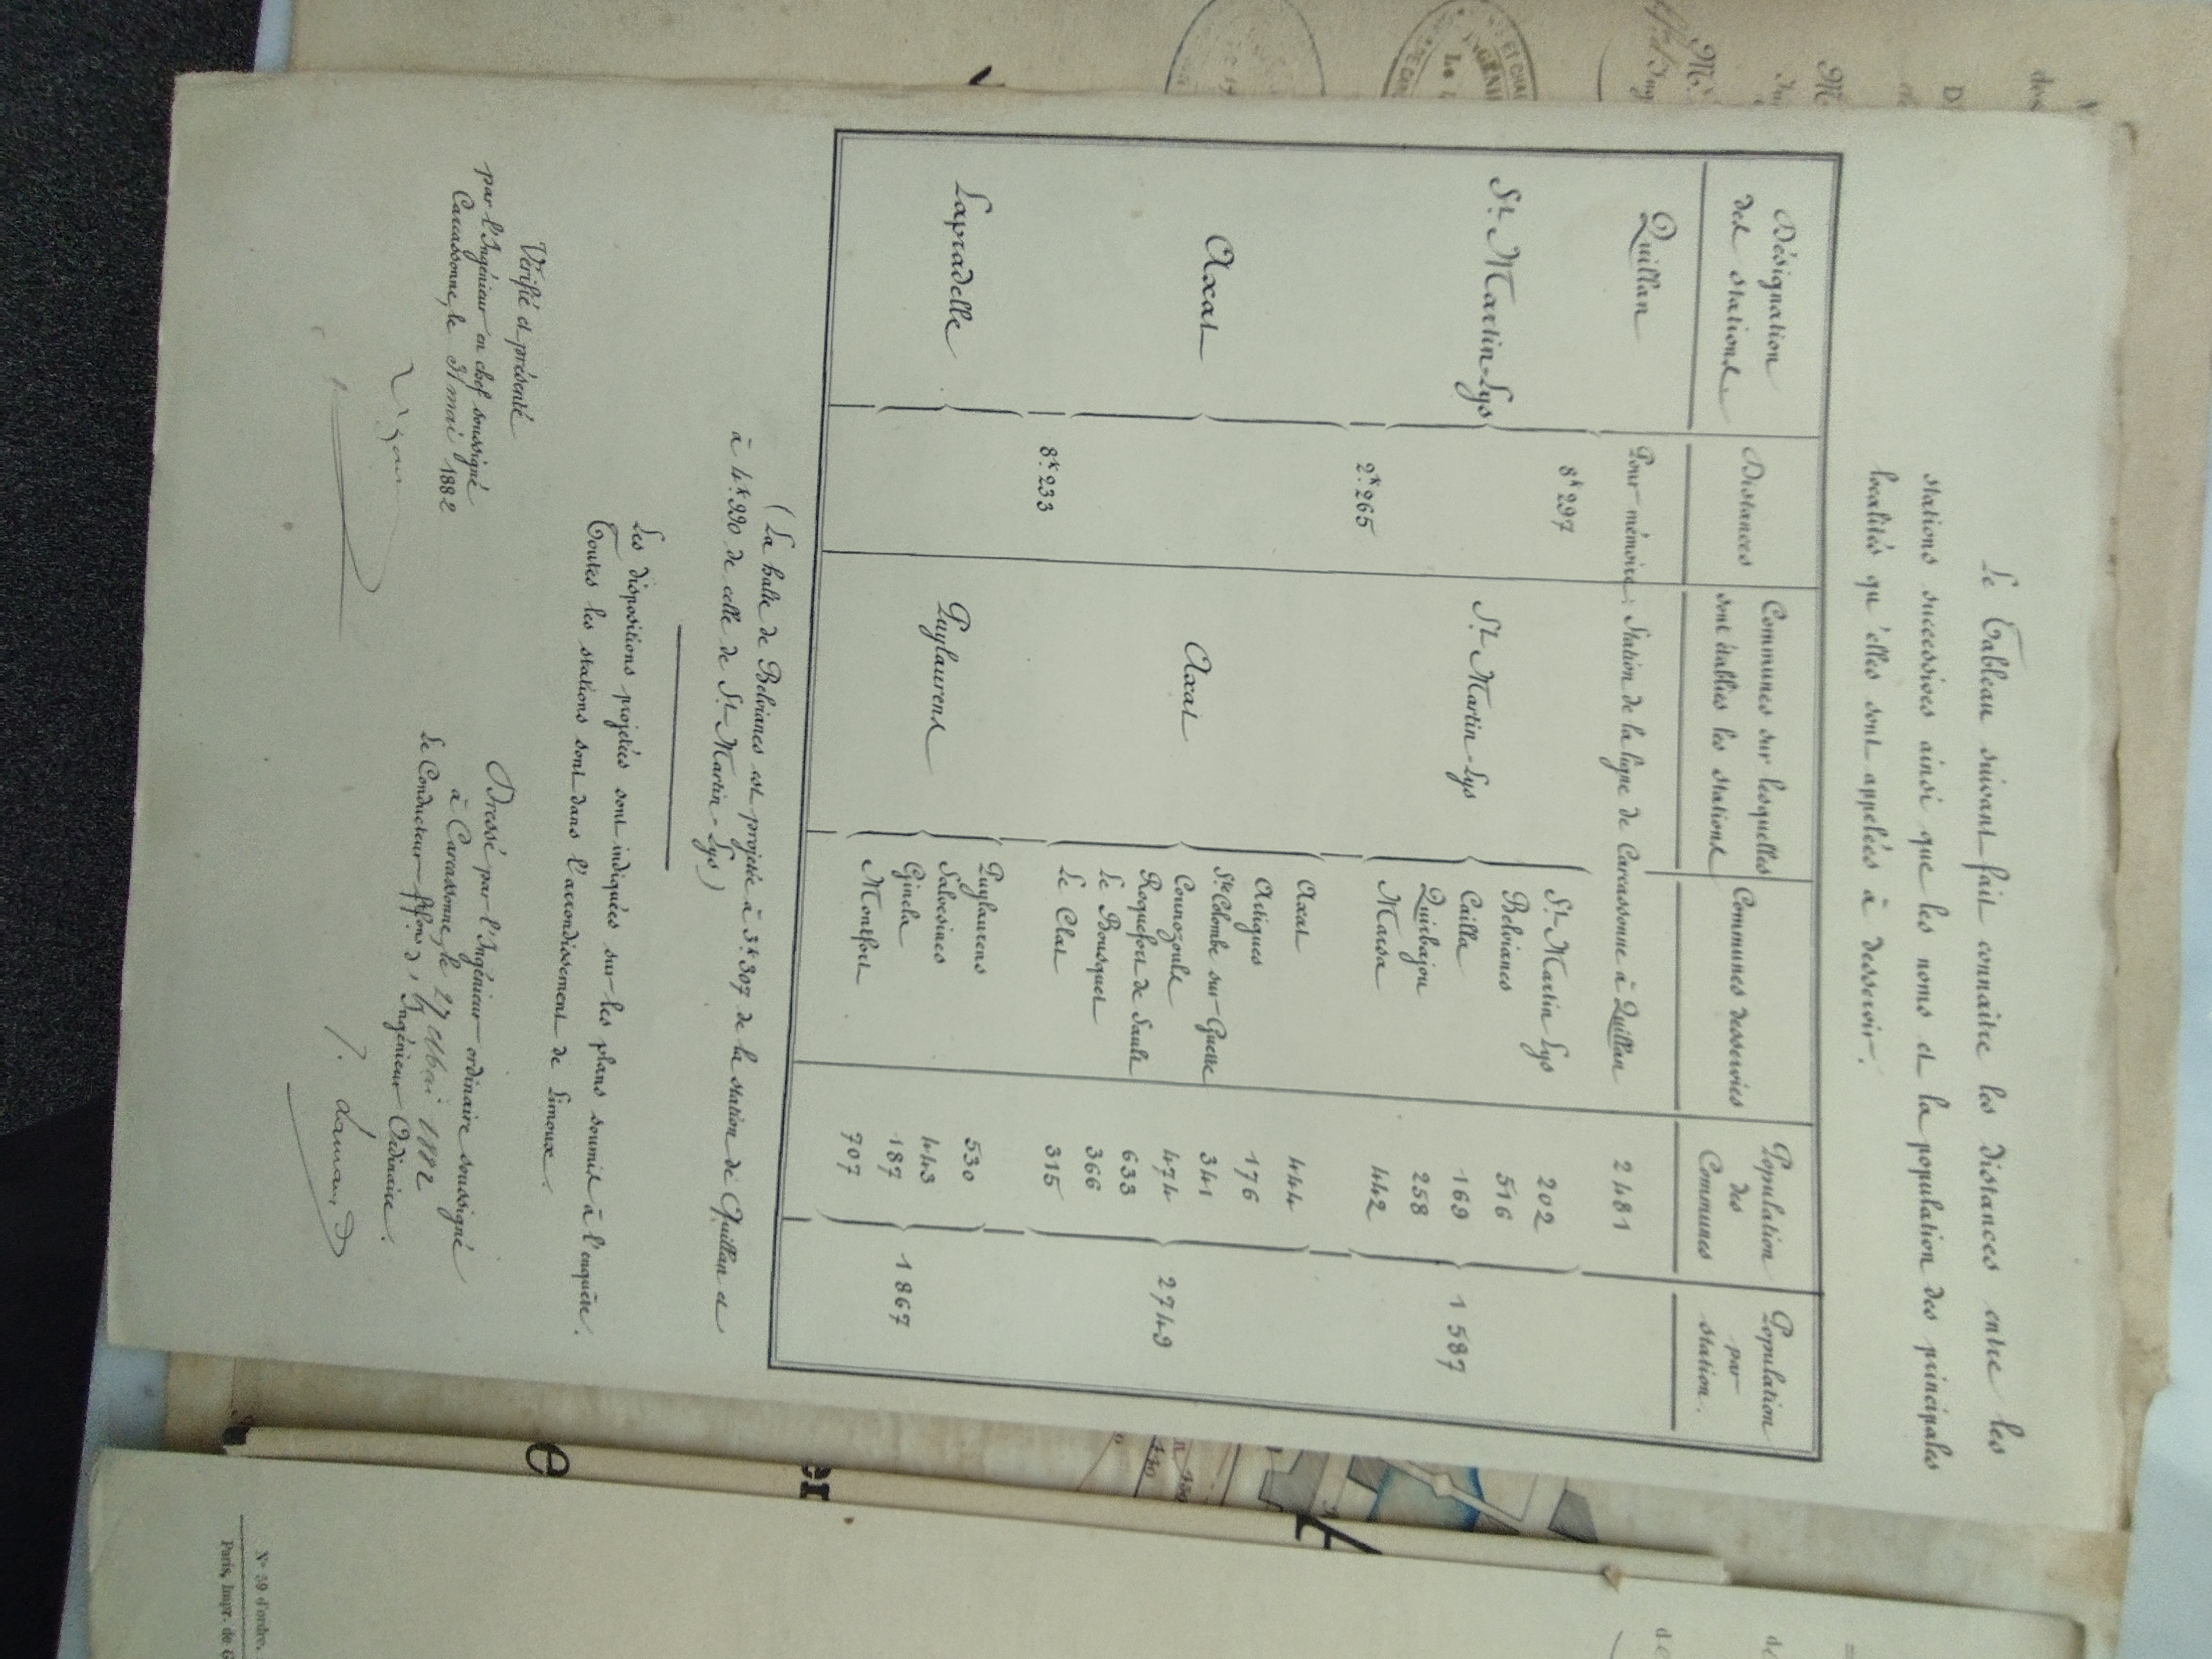 Le Tableau suivant fait connaître les distances entre les
stations successives ainsi que les noms et la population des principales
localités qu'elles sont appelées à desservir.
Désignation des stations
Distances
Communes sur lesquelles sont établies les stations
Communes desservies
Population des Communes
Population par station.
Quillan Pour mémoire : Station de la ligne de Carcassonne à Quillan 2481
8k297
St Martin-Lys St Martin-Lys
St Martin Lys 202
Belvianes 516
Cailla 169 1587
Quirbajou 258
Marsa 442
2k.265
Axat 444
Artigues 176
Ste Colombe sur Guette 341
Axat Axat
Counozouls 474 2749
Roquefort de Sault 633
Le Bousquet 366
Le Clat 315
8k.233
Puylaurens 530
Lapradelle Puylaurens
Salvesines 443
Gincla 187 1867
Montfort 707
(La halte de Belvianes est projetée à 3k.307 de la station de Quillan et
à 4k.990 de celle de St Martin-Lys)
Les dispositions projetées sont indiquées sur les plans soumis à l'enquête.
Toutes les stations sont dans l'arrondissement de Limoux.
Vérifié et présenté
par l'Ingénieur en chef soussigné
Carcassonne, le 31 mai 1882
Dressé par l'Ingénieur ordinaire soussigné
à Carcassonne, le 27 Mai 1882
Le Conducteur ffons d'Ingénieur Ordinaire.
No 59 d'ordre.
Paris, Impr. de G